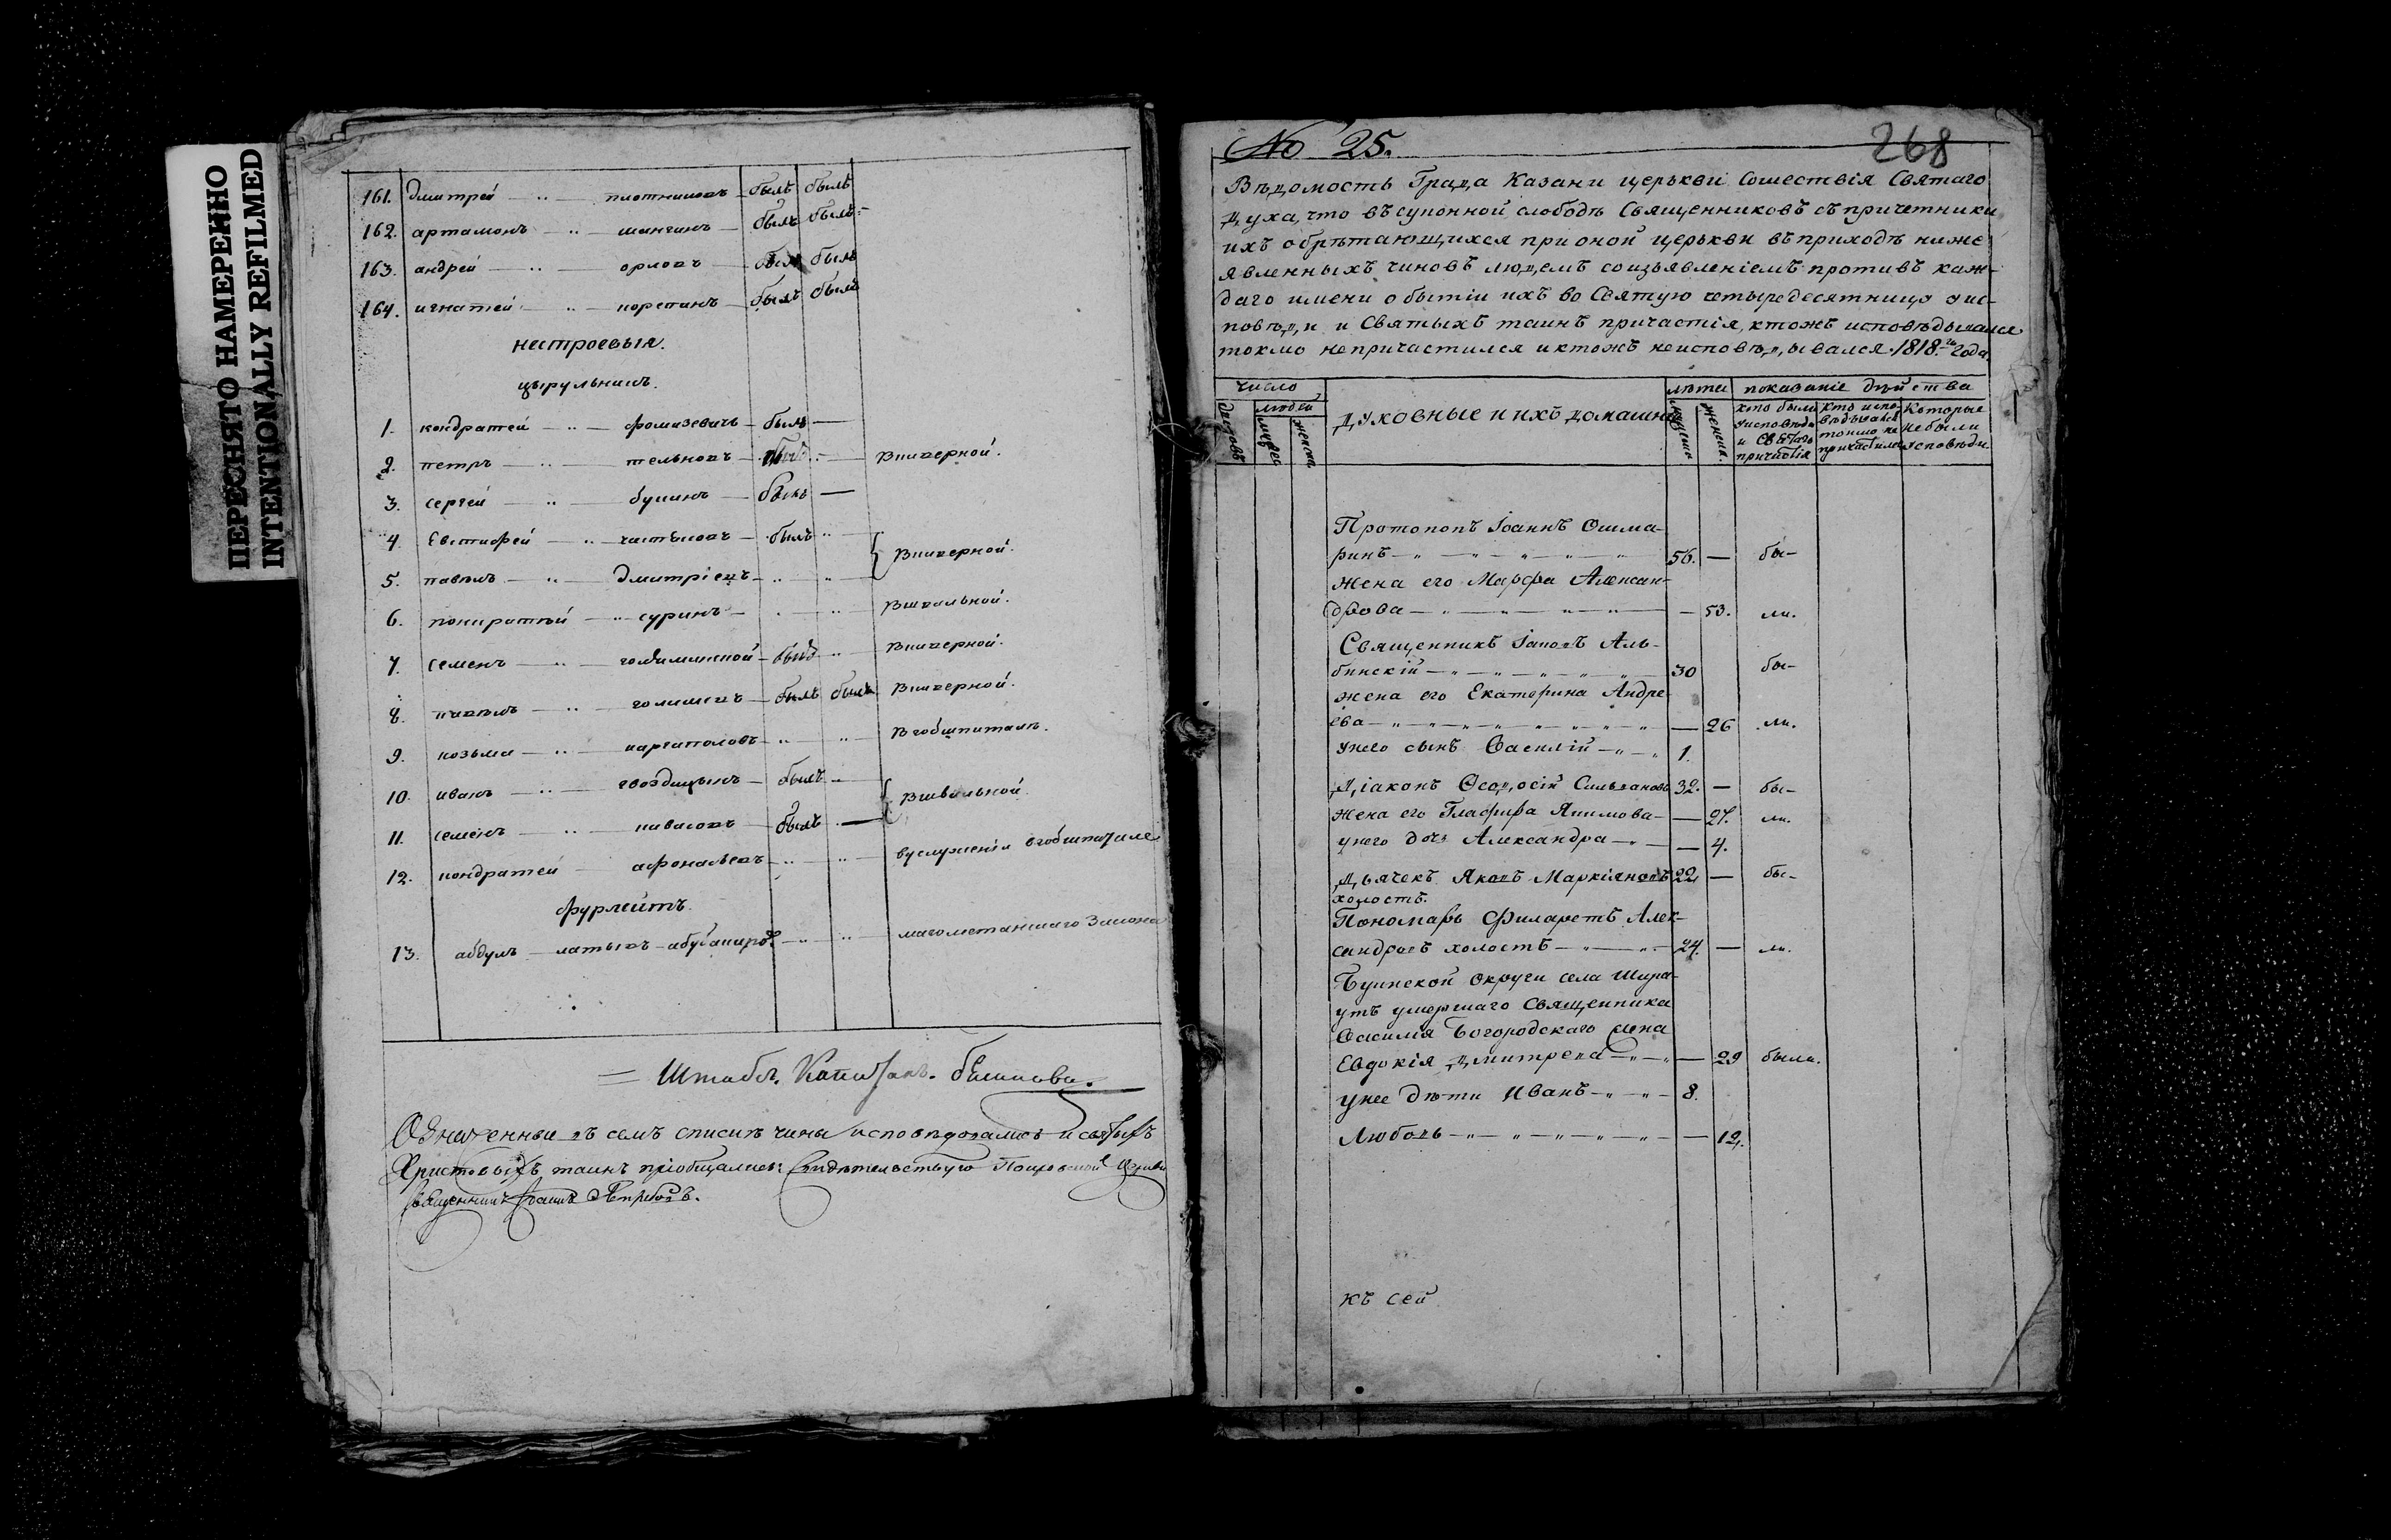 ПЕРЕСНЯТО НАМЕРЕННО
INTENTIONALLY REFILMED
161. дмитрей плотниковъ былъ былъ
162. артамонъ шангинъ былъ былъ
163. андрей орловъ былъ былъ
164. игнатей корепинъ былъ былъ
нестроевыя.
цырульникъ.
1. кондратей фомазевичь былъ
2. петръ тельновъ былъ вшверной.
3. сергей букинъ былъ
4. Евстифей былъ
5. павелъ дмитріевъ вшверной.
6. понкратей суринъ вшвальной.
7. семенъ былъ вшверной.
8. павелъ голишевъ былъ былъ вшверной.
9. козьма каргаполовъ вгобшпитале.
10. иванъ гвоздицынъ былъ
11. семенъ былъ вшвальной
12. кондратей афонасьевъ вуслуженіи вгобшпитале
фурлейтъ
13. абдулъ латыпъ абубакиров магометанскаго закона
Штабсъ. Капитанъ.
Означенные въ семъ списке чины исповедовались и святыхъ
Христовыхъ таинъ пріобщались: Свидетельствую Покровской Церкви
Священникъ Іоаннъ Петровъ.
№ 25.
268
Вѣдомость Града Казани церькви Сошествія Святаго
Духа, что въ супонной слободѣ Священниковъ съ причетники
ихъ обрѣтающихся при оной церькви въ приходѣ ниже
явленныхъ чиновъ людемъ со изъявленіемъ противъ каж-
даго имени о бытіи ихъ во Святую четыредесятницу у ис-
повѣди и Святыхъ таинъ причастія, ктожъ исповѣдывался
токмо непричастился и ктожъ неисповѣдывался. 1818.го года.
число
людей
дворовъ
мужес
женска
духовные и ихъ домашнѣ
лѣта
мужеска
женска.
показаніе дѣйства
кто были уисповѣди и Святаго причастія
Кто испо- вѣдывался токмо не причастился
Которые не были у исповѣди.
Протопопъ Іоаннъ Ошма-
ринъ 56. бы-
Жена его Марфа Алексан-
дрова 53. ли.
Священникъ Іаковъ Аль-
бинскій 30 бы-
жена его Екатерина Андре
ева 26 ли.
унего сынъ Василій 1.
Діаконъ Ѳеодосій Сильвановъ 32. бы-
Жена его Глафира Якимова 27. ли.
унего дочь Александра 4.
Дьячекъ Яковъ Маркіяновъ 22 бы-
холостъ.
Пономарь Филаретъ Алек-
сандровъ холостъ 24. ли.
Буинской округи села Шира-
утъ умершаго Священника
Василія Богородскаго жена
Евдокія Дмитрева 29 была.
унее дѣти Иванъ 8.
Любовь 12.
къ сей